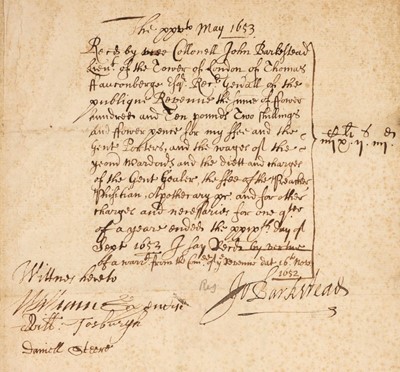 The xxvth May 1653
Recd by mee Collonell John Barkstead
Lieut of the Tower of London of Thomas
Fauconberge Esqr Recr Gen'all of the
publique Revenue the sume of ffower
hundred and Ten pounds Two shillings
and ffower pence for my ffee and the
Gent Porters, and the wages of the
yeom Warders, and the diett and charges
of the Gent Goaler, the ffee of the Preacher
Phisitian Apothecary &c and for other
charges and necessaries for one qter
of a yeare ended the day of
Sept 1652 I say Recd by vertue
of a warrt from the Com of ye Revenue dat 16 Nov
1652
li s d
iiij x ij iiij
Wittnes hereto
Jo Barkstead
Will:
Daniell Steere